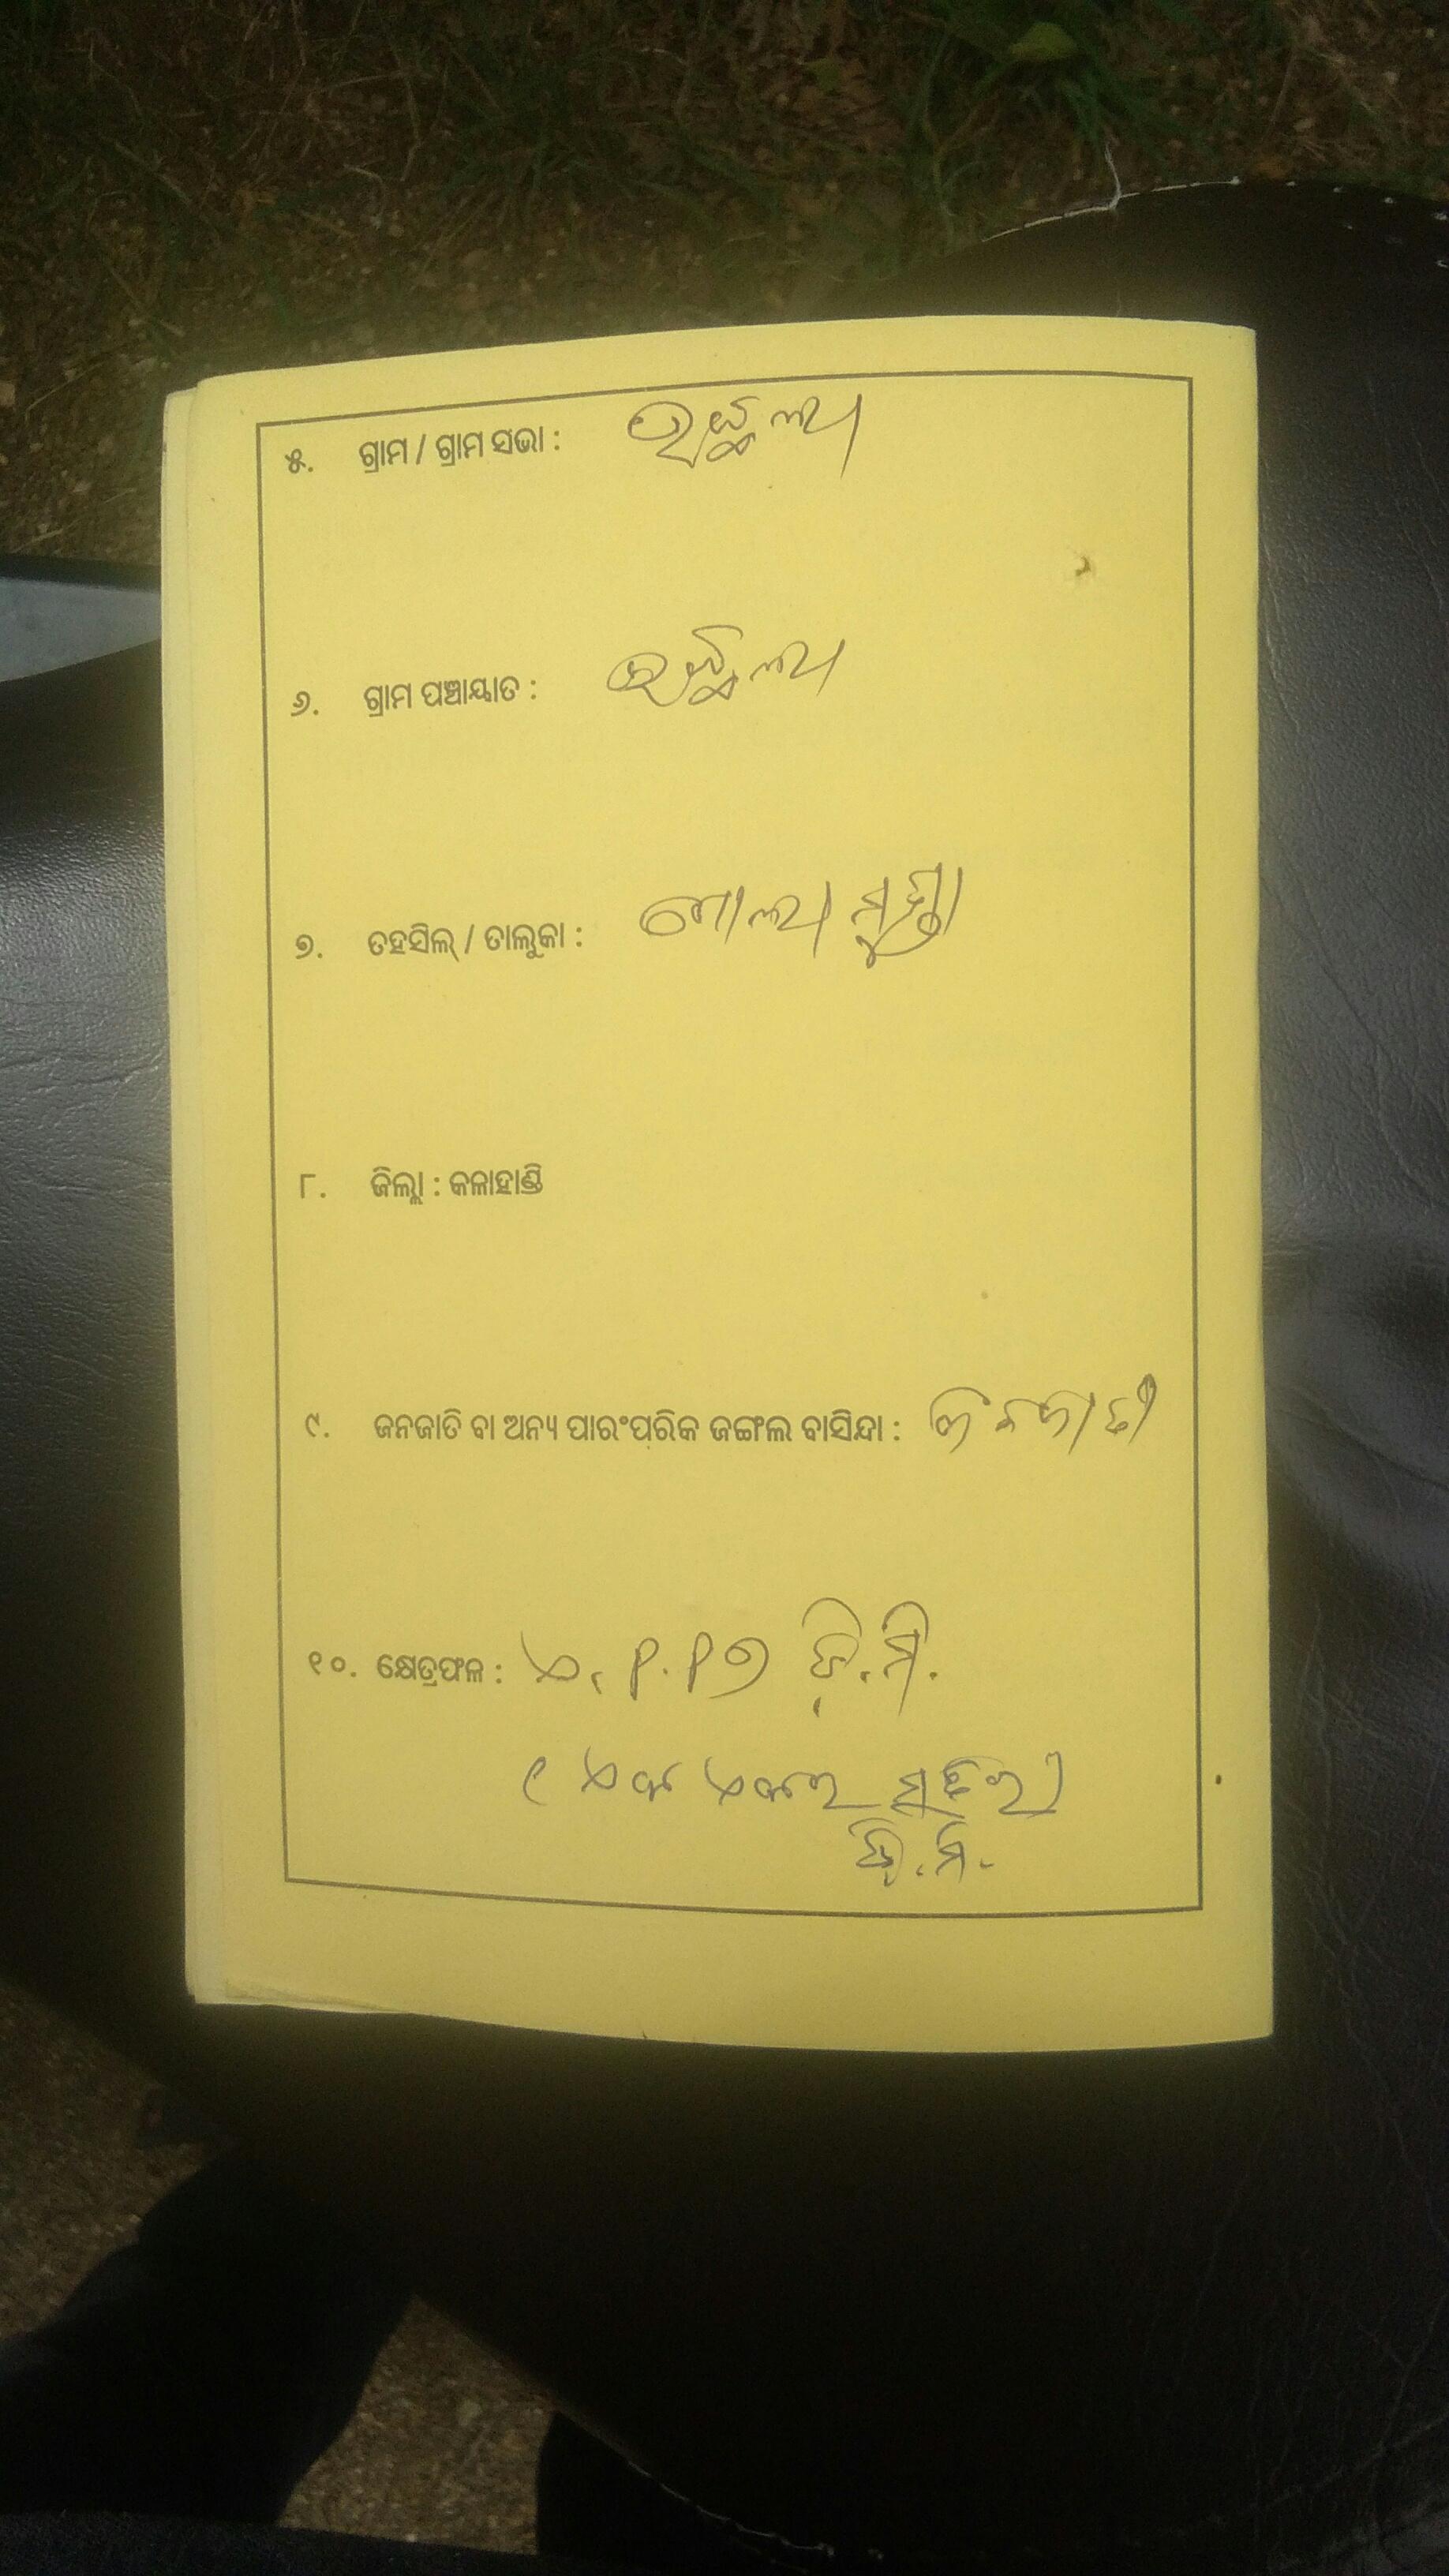 ୫. ଗ୍ରାମ / ଗ୍ରାମ ସଭା :
୬. ଗ୍ରାମ ପଞ୍ଚାୟାତ :
୭. ତହସିଲ୍ / ତାଲୁକା : ଗୋଲାମୁଣ୍ଡା
୮. ଜିଲ୍ଲା : କଳାହାଣ୍ଡି
୯. ଜନଜାତି ବା ଅନ୍ୟ ପାରଂପରିକ ଜଙ୍ଗଲ ବାସିନ୍ଦା : ଜନଜାତି
୧୦. କ୍ଷେତ୍ରଫଳ : ଏ. ୧.୧୭ ଡ଼ି.ମି.
( ଏକ ଏକର ସତର )
ଡ଼ି.ମି.